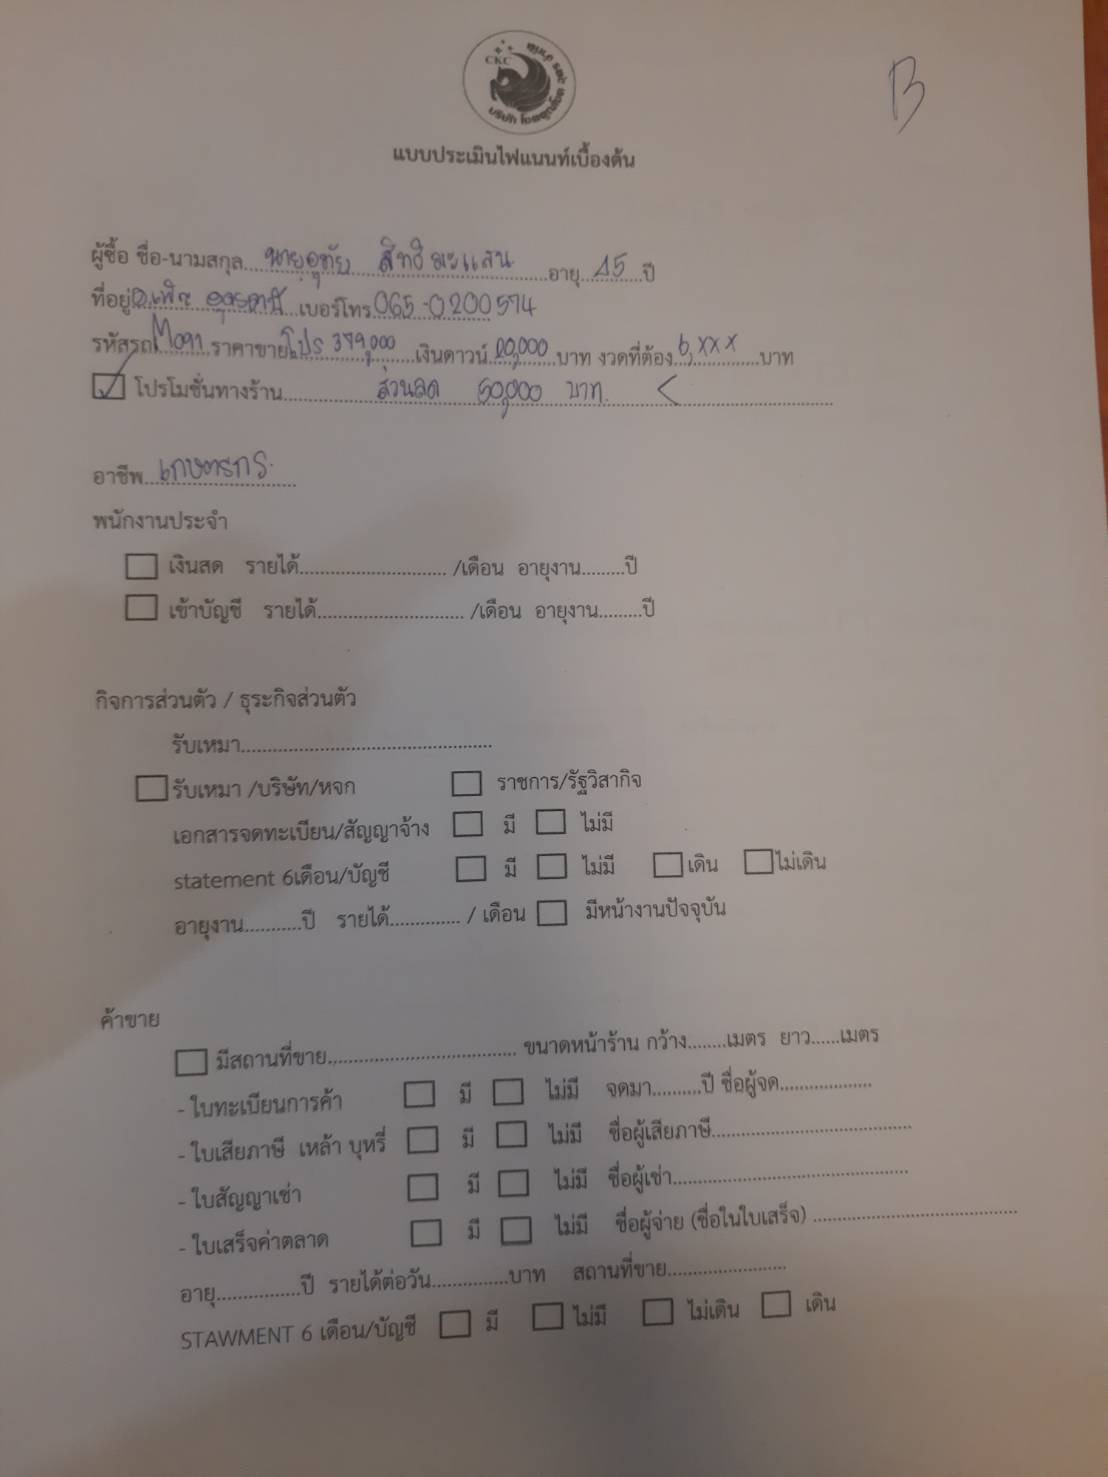 CKC
B
แบบประเมินไฟแนนท์เบื้องต้น
ผู้ซื้อ ชื่อ-นามสกุล นายอุทัย สิทธิ อายุ 45 ปี
ที่อยู่ อุดรธานี เบอร์โทร 065-0200594
รหัสรถ M091 ราคาขาย โปร 379,000 เงินดาวน์ 20,000 บาท งวดที่ต้อง 6,xxx บาท
โปรโมชั่นทางร้าน ส่วนลด 50,000 บาท <
อาชีพ เกษตรกร
พนักงานประจำ
เงินสด รายได้ /เดือน อายุงาน ปี
เข้าบัญชี รายได้ /เดือน อายุงาน ปี
กิจการส่วนตัว / ธุระกิจส่วนตัว
รับเหมา
รับเหมา /บริษัท/หจก ราชการ/รัฐวิสากิจ
เอกสารจดทะเบียน/สัญญาจ้าง มี ไม่มี
statement 6เดือน/บัญชี มี ไม่มี เดิน ไม่เดิน
อายุงาน ปี รายได้ / เดือน มีหน้างานปัจจุบัน
ค้าขาย
มีสถานที่ขาย ขนาดหน้าร้าน กว้าง เมตร ยาว เมตร
- ใบทะเบียนการค้า มี ไม่มี จดมา ปี ชื่อผู้จด
- ใบเสียภาษี เหล้า บุหรี่ มี ไม่มี ชื่อผู้เสียภาษี
- ใบสัญญาเช่า มี ไม่มี ชื่อผู้เช่า
- ใบเสร็จค่าตลาด มี ไม่มี ชื่อผู้จ่าย (ชื่อในใบเสร็จ)
อายุ ปี รายได้ต่อวัน บาท สถานที่ขาย
STAWMENT 6 เดือน/บัญชี มี ไม่มี ไม่เดิน เดิน